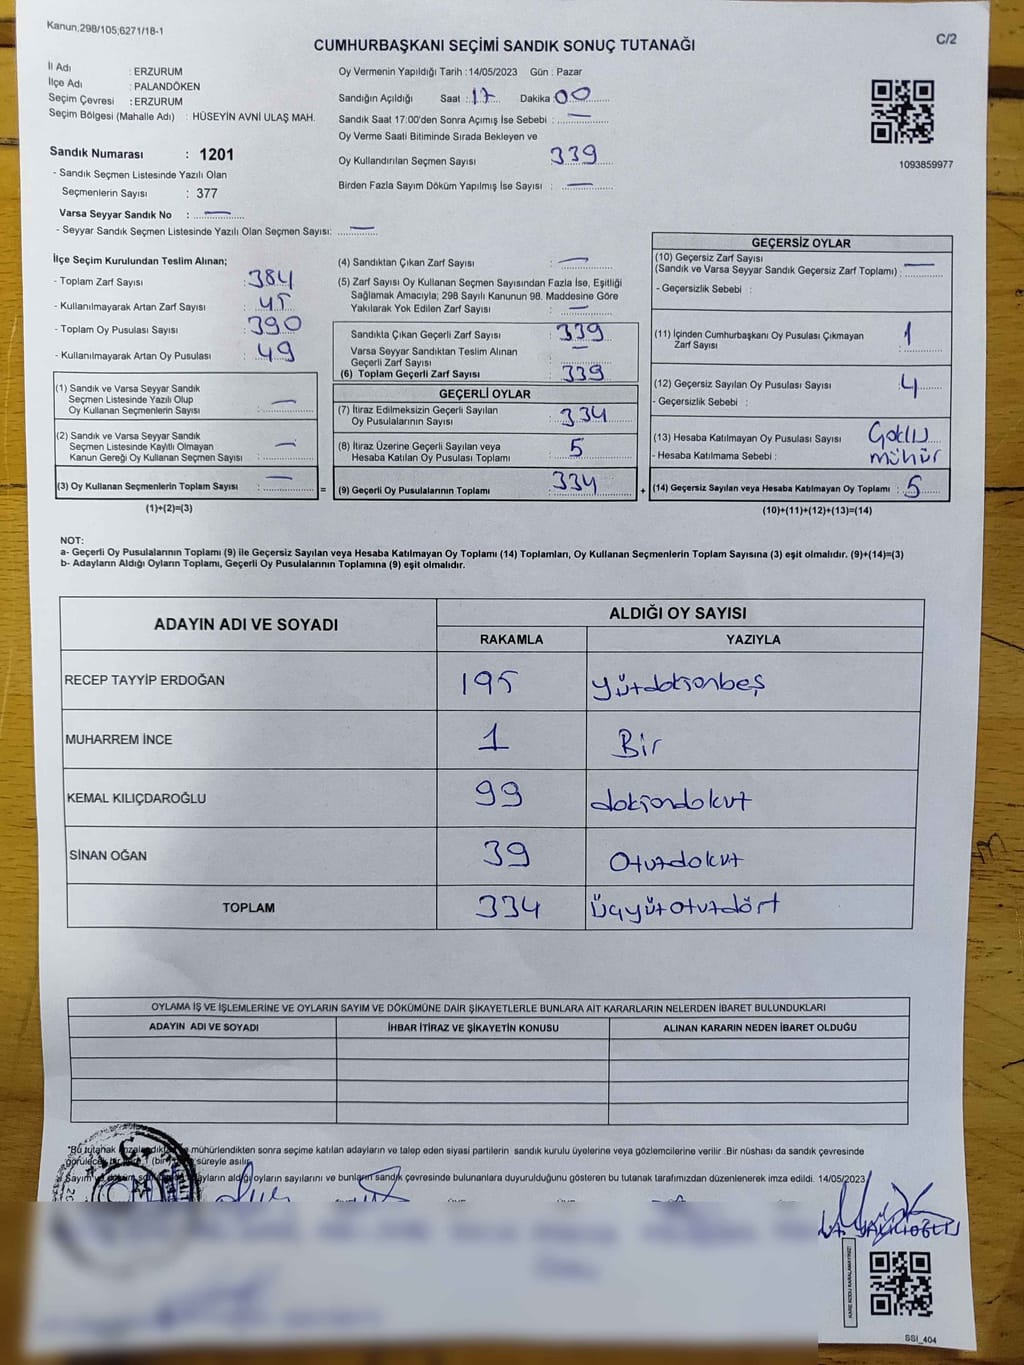 Kanun,298/105;6271/18-1
C/2
CUMHURBAŞKANI SEÇİMİ SANDIK SONUÇ TUTANAĞI
İl Adı : ERZURUM
İlçe Adı : PALANDÖKEN
Seçim Çevresi : ERZURUM
Seçim Bölgesi (Mahalle Adı) : HÜSEYİN AVNİ ULAŞ MAH.
Sandık Numarası : 1201
- Sandık Seçmen Listesinde Yazılı Olan
Seçmenlerin Sayısı : 377
Varsa Seyyar Sandık No : —
- Seyyar Sandık Seçmen Listesinde Yazılı Olan Seçmen Sayısı: —
Oy Vermenin Yapıldığı Tarih :14/05/2023 Gün : Pazar
Sandığın Açıldığı Saat : 17 Dakika : 00
Sandık Saat 17:00'den Sonra Açımış İse Sebebi : —
Oy Verme Saati Bitiminde Sırada Bekleyen ve
Oy Kullandırılan Seçmen Sayısı 339
Birden Fazla Sayım Döküm Yapılmış İse Sayısı : —
1093859977
İlçe Seçim Kurulundan Teslim Alınan;
- Toplam Zarf Sayısı : 384
- Kullanılmayarak Artan Zarf Sayısı : 45
- Toplam Oy Pusulası Sayısı : 390
- Kullanılmayarak Artan Oy Pusulası : 49
(1) Sandık ve Varsa Seyyar Sandık
Seçmen Listesinde Yazılı Olup
Oy Kullanan Seçmenlerin Sayısı : —
(2) Sandık ve Varsa Seyyar Sandık
Seçmen Listesinde Kayıtlı Olmayan
Kanun Gereği Oy Kullanan Seçmen Sayısı : —
(3) Oy Kullanan Seçmenlerin Toplam Sayısı : — =
(1)+(2)=(3)
(4) Sandıktan Çıkan Zarf Sayısı : —
(5) Zarf Sayısı Oy Kullanan Seçmen Sayısından Fazla İse, Eşitliği
Sağlamak Amacıyla; 298 Sayılı Kanunun 98. Maddesine Göre
Yakılarak Yok Edilen Zarf Sayısı : —
Sandıkta Çıkan Geçerli Zarf Sayısı : 339
Varsa Seyyar Sandıktan Teslim Alınan
Geçerli Zarf Sayısı : —
(6) Toplam Geçerli Zarf Sayısı : 339
GEÇERLİ OYLAR
(7) İtiraz Edilmeksizin Geçerli Sayılan
Oy Pusulalarının Sayısı : 334
(8) İtiraz Üzerine Geçerli Sayılan veya
Hesaba Katılan Oy Pusulası Toplamı : 5
(9) Geçerli Oy Pusulalarının Toplamı : 334 +
GEÇERSİZ OYLAR
(10) Geçersiz Zarf Sayısı
(Sandık ve Varsa Seyyar Sandık Geçersiz Zarf Toplamı) : —
- Geçersizlik Sebebi :
(11) İçinden Cumhurbaşkanı Oy Pusulası Çıkmayan
Zarf Sayısı : 1
(12) Geçersiz Sayılan Oy Pusulası Sayısı : 4
- Geçersizlik Sebebi :
(13) Hesaba Katılmayan Oy Pusulası Sayısı
- Hesaba Katılmama Sebebi : mühür
(14) Geçersiz Sayılan veya Hesaba Katılmayan Oy Toplamı : 5
(10)+(11)+(12)+(13)=(14)
NOT:
a- Geçerli Oy Pusulalarının Toplamı (9) ile Geçersiz Sayılan veya Hesaba Katılmayan Oy Toplamı (14) Toplamları, Oy Kullanan Seçmenlerin Toplam Sayısına (3) eşit olmalıdır. (9)+(14)=(3)
b- Adayların Aldığı Oyların Toplamı, Geçerli Oy Pusulalarının Toplamına (9) eşit olmalıdır.
ADAYIN ADI VE SOYADI ALDIĞI OY SAYISI
RAKAMLA YAZIYLA
RECEP TAYYİP ERDOĞAN 195 yüzdoksanbeş
MUHARREM İNCE 1 Bir
KEMAL KILIÇDAROĞLU 99 doksandokuz
SİNAN OĞAN 39 Otuzdokuz
TOPLAM 334 Üçyüzotuzdört
OYLAMA İŞ VE İŞLEMLERİNE VE OYLARIN SAYIM VE DÖKÜMÜNE DAİR ŞİKAYETLERLE BUNLARA AİT KARARLARIN NELERDEN İBARET BULUNDUKLARI
ADAYIN ADI VE SOYADI İHBAR İTİRAZ VE ŞİKAYETİN KONUSU ALINAN KARARIN NEDEN İBARET OLDUĞU
*Bu tutanak mühürlendikten sonra seçime katılan adayların ve talep eden siyasi partilerin sandık kurulu üyelerine veya gözlemcilerine verilir .Bir nüshası da sandık çevresinde
süreyle asılır.
aldığı oyların sayılarını ve bunların sandık çevresinde bulunanlara duyurulduğunu gösteren bu tutanak tarafımızdan düzenlenerek imza edildi. 14/05/2023
SSI_404